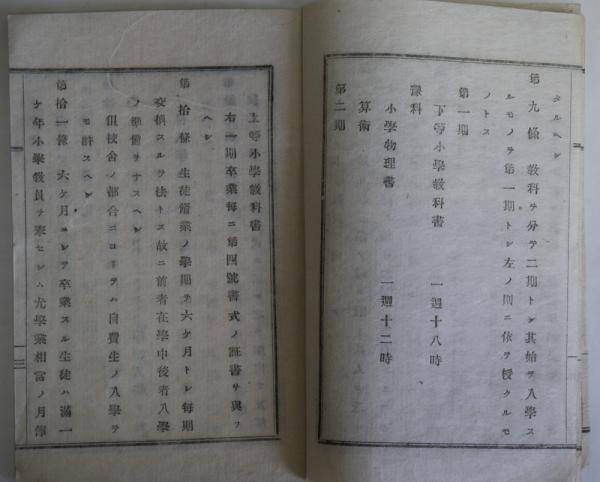 タルヘシ
第九條 教科ヲ分テ二期トシ其始テ入學ス
ルモノヲ第一期トシ左ノ則ニ依テ授クルモ
ノトス
第一期
下等小學教科書 一週十八時
豫科
小學物理書 一週十二時
算術
第二期
上等小學教科書
右一期卒業毎ニ第四號書式ノ証書ヲ與フ
ヘシ
第拾條 生徒脩業ノ學期ヲ六ケ月トシ毎期
交換スルヲ法トス故ニ前者在學中後者入學
ノ準備ヲナスヘシ
但校舎ノ都合ニヨリテハ自費生ノ入學ヲ
許スヘシ
第拾一條 六ケ月ニシテ卒業スル生徒ハ滿一
ケ年小學教員ヲ奉セシム尤學業相當ノ月俸